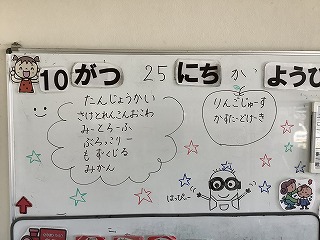 10 がつ 25 にち か ようび
たんじょうかい
さけとれんこんおこわ
みーとろーふ
ぶろっこりー
もずくじる
みかん
りんごじゅーす
かすたーどけーき
はっぴー